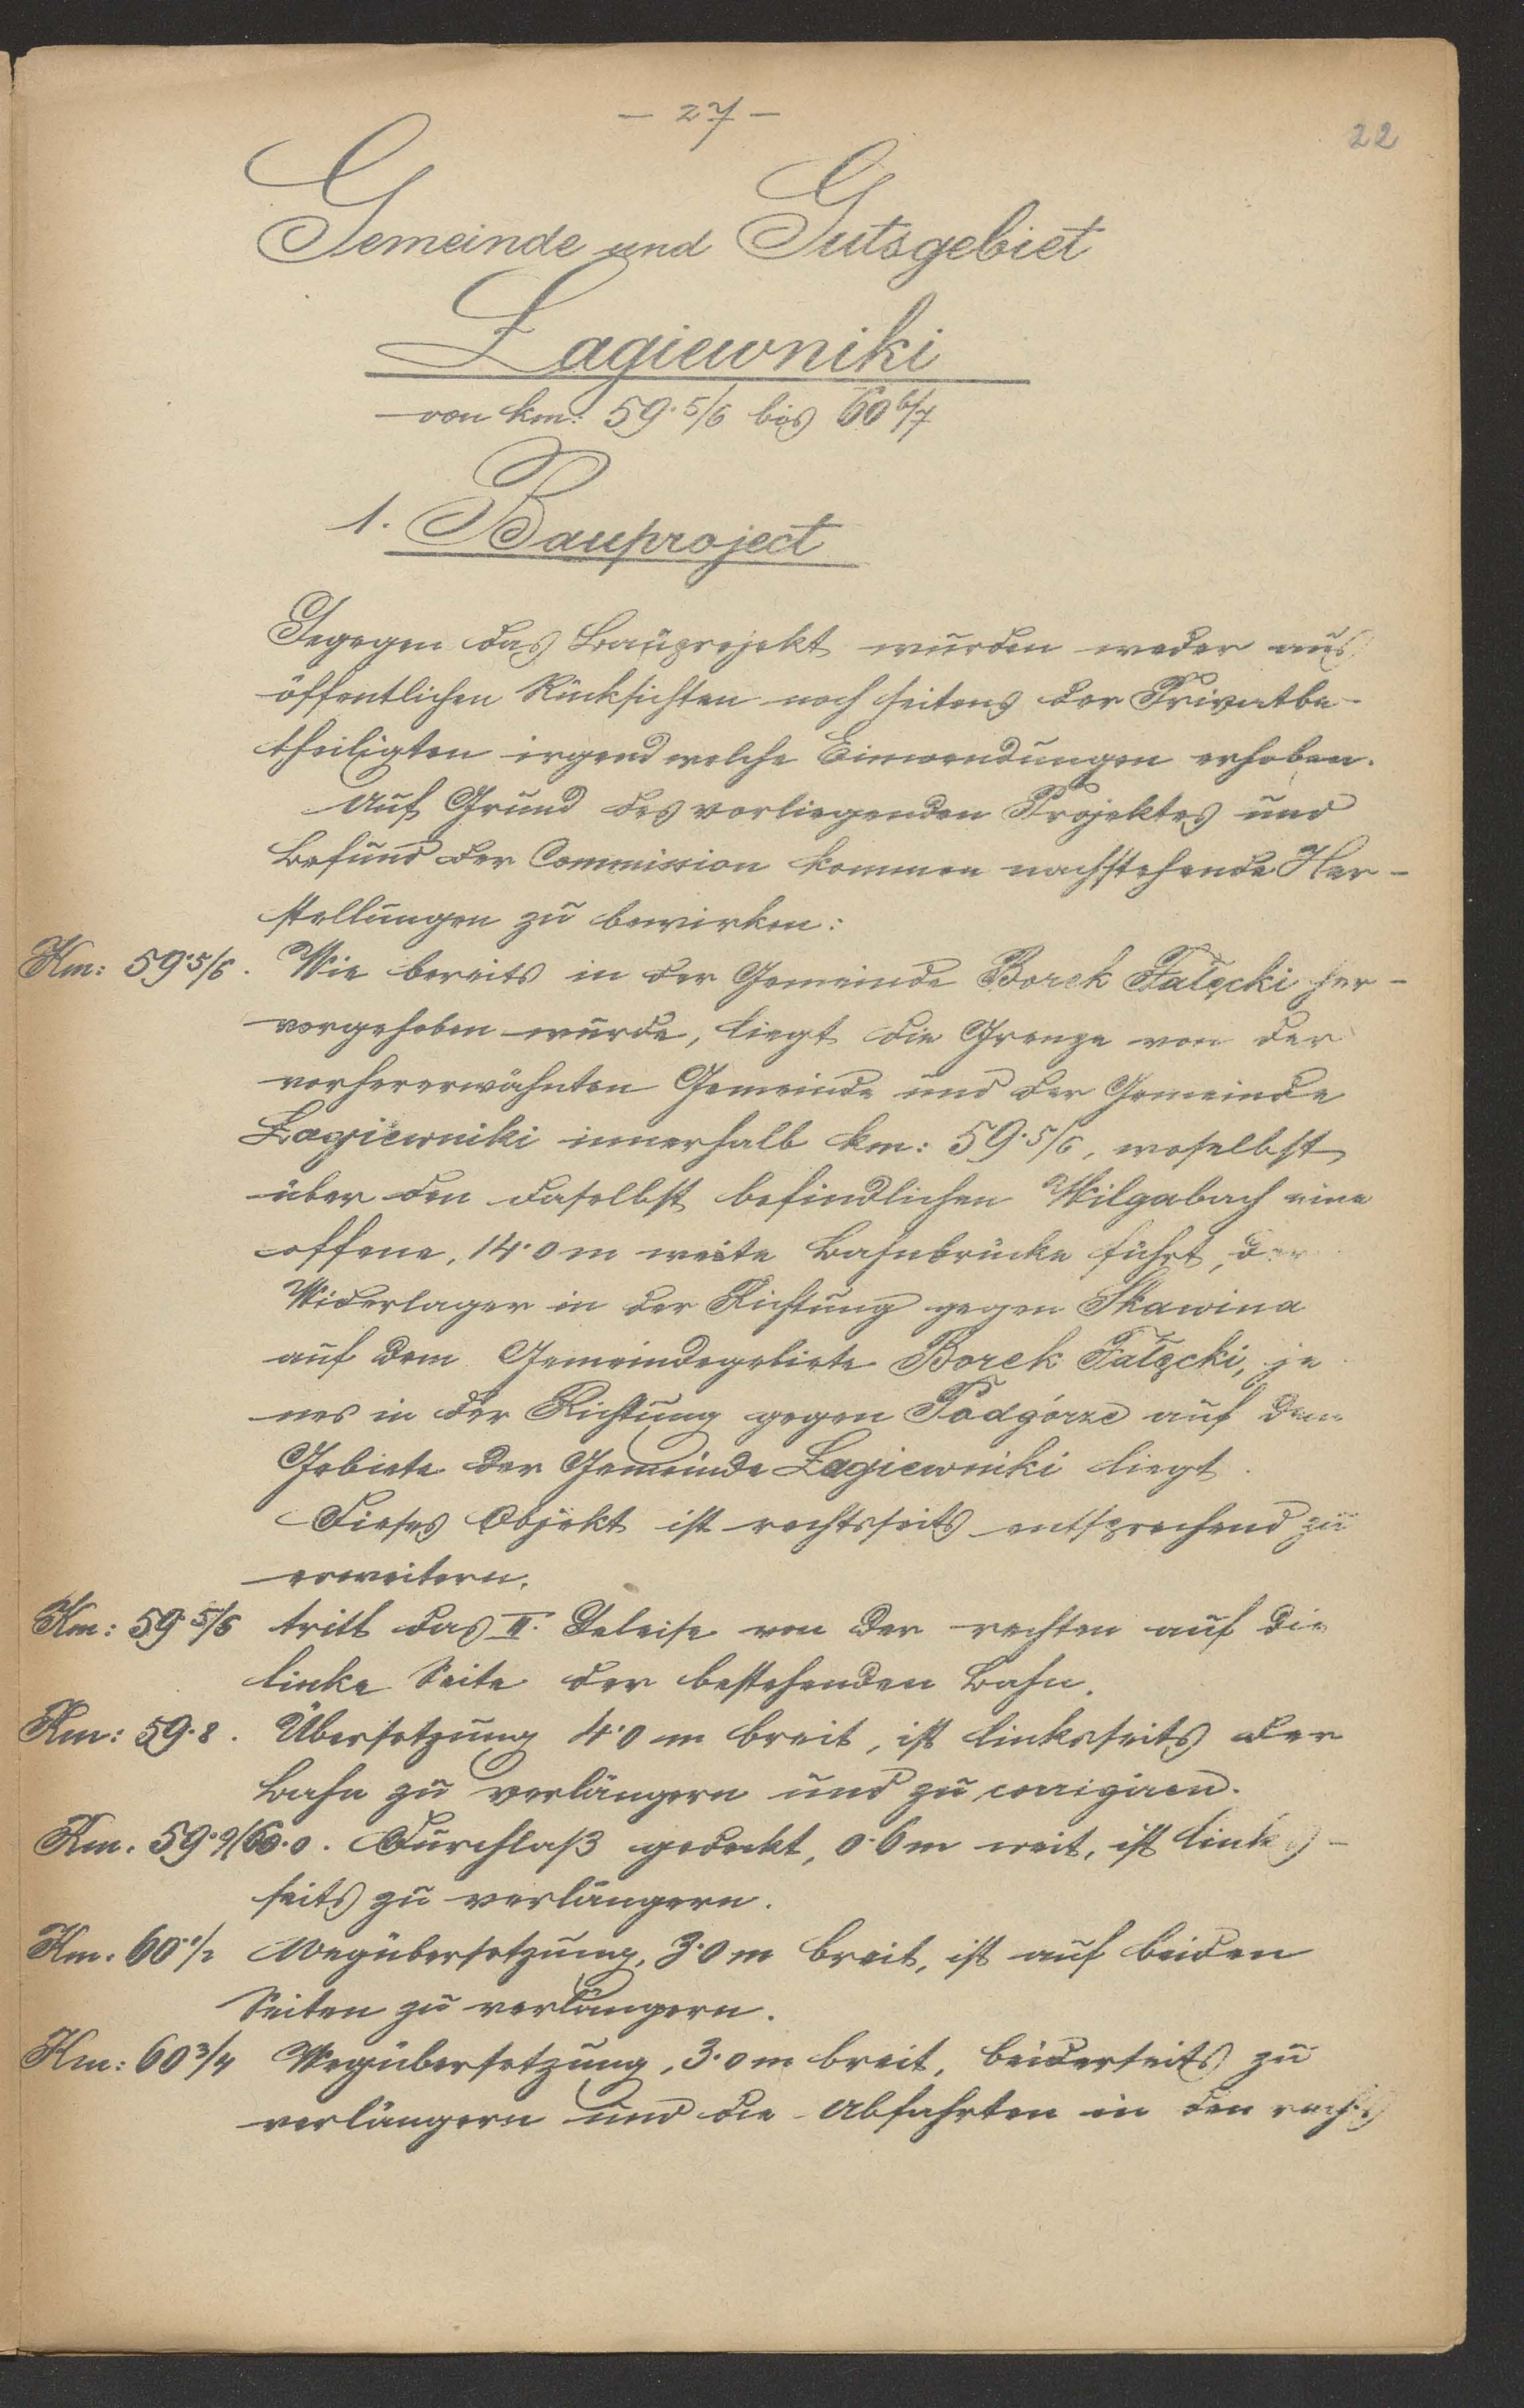 — 27 —
22
Gemeinde und Gutsgebiet
Łagiewniki
von km: 59·5/6 bis 60 6/7
1. Bauproject
Gegegen das Bauprojekt wurden weder aus
öffentlichen Rücksichten noch seitens der Privatbe-
theiligten irgend welche Einwendungen erhoben.
Auf Grund des vorliegenden Projektes und
Befund der Commission kommen nachstehende Her-
stellungen zu bewirken:
Km: 59·5/6. Wie bereits in der Gemeinde Borek Fałęcki her-
vorgehoben wurde, liegt die Grenze von der
vorhererwähnten Gemeinde und der Gemeinde
Łagiewniki innerhalb km: 59·5/6, woselbst
über den daselbst befindlichen Wilgabach eine
offene, 14·0 m weite Bahnbrücke führt, der
Widerlager in der Richtung gegen Skawina
auf dem Gemeindegebiete Borek Fałęcki, je
nes in der Richtung gegen Podgórze auf dem
Gebiete der Gemeinde Łagiewniki liegt.
Dieses Objekt ist rechtsseits entsprechend zu
erweitern.
Km: 59·5/6 tritt das II. Geleise von der rechten auf die
linke Seite der bestehenden Bahn.
Km: 59·8. Übersetzung 4·0 m breit, ist linksseits der
Bahn zu verlängern und zu corrigiren.
Km. 59·9/60·0. Durchlaß gedeckt, 0·6 m weit, ist links-
seits zu verlängern.
Km. 60·1/2 Wegübersetzung, 3·0 m breit, ist auf beiden
Seiten zu verlängern.
Km: 60 3/4 Wegübersetzung, 3·0 m breit, beiderseits zu
verlängern und die Abfahrten in den rechts